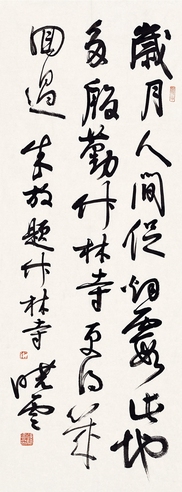 歲月人間促烟霞此地
多殷勤竹林寺更得幾
回過
朱放題竹林寺
曉雲